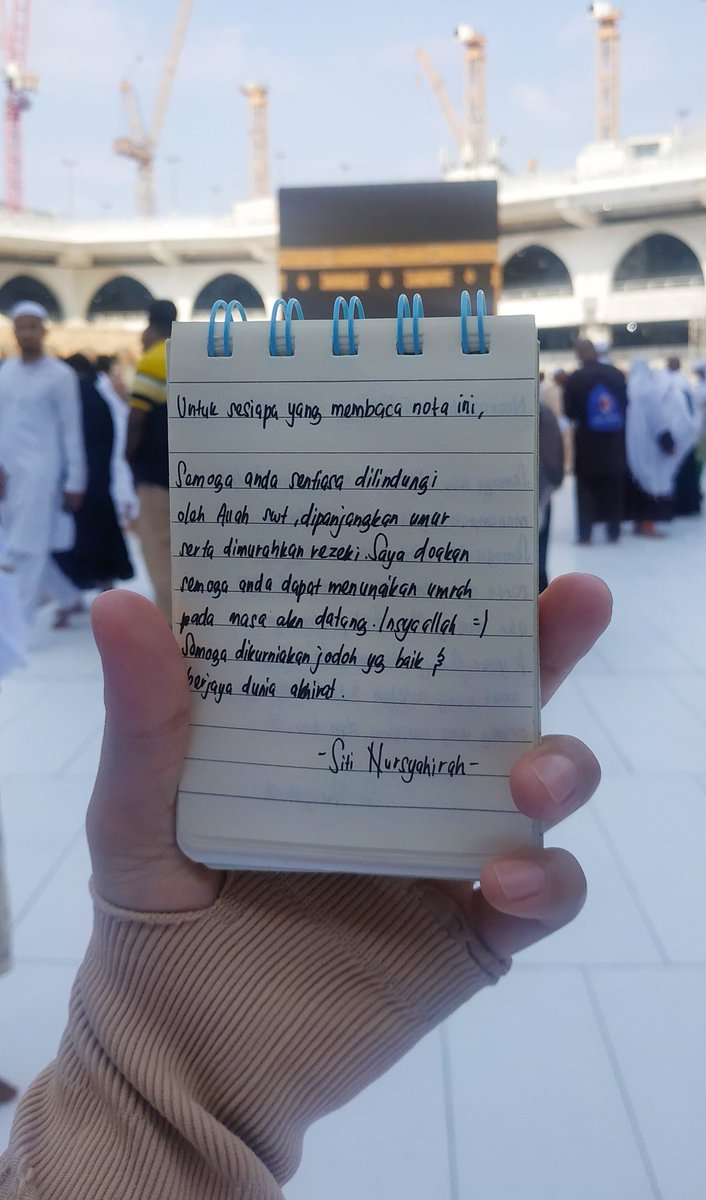 Untuk sesiapa yang membaca nota ini,
Semoga anda sentiasa dilindungi
oleh Allah swt, dipanjangkan umur
serta dimurahkan rezeki. Saya doakan
semoga anda dapat menunaikan umrah
pada masa akn datang. Insyaallah =)
Semoga dikurniakan jodoh yg baik &
berjaya dunia akhirat.
-Siti Nursyahirah-